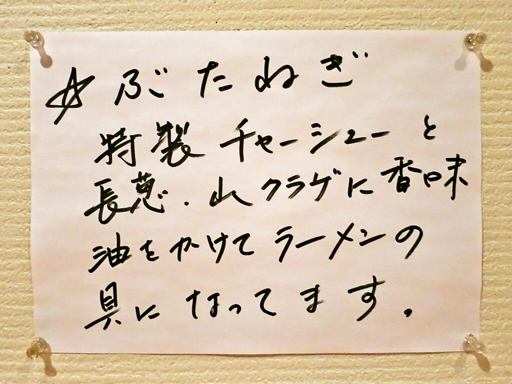 ☆ぶたねぎ
特製チャーシューと
長葱．山クラゲに香味
油をかけてラーメンの
具になってます。